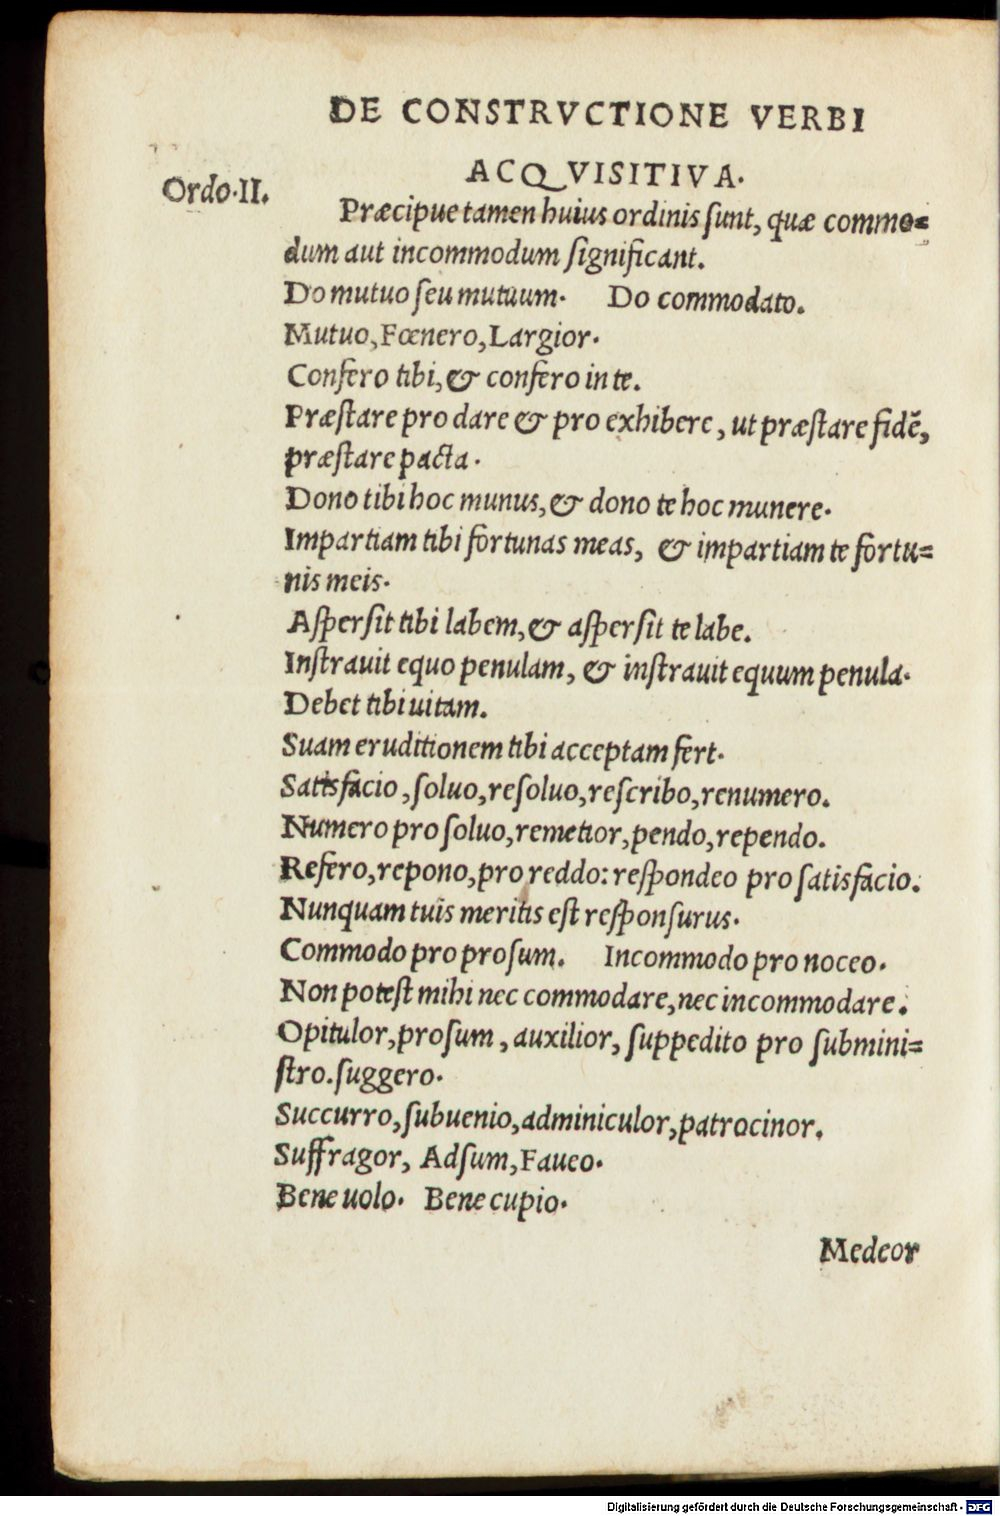 DE CONSTRVCTIONE VERBI
ACQVISITIVA.
Ordo.II.
Præcipue tamen huius ordinis ſunt, quæ commo=
dum aut incommodum ſignificant.
Do mutuo ſeu mutuum. Do commodato.
Mutuo, Fœnero, Largior.
Confero tibi, & confero in te.
Præſtare pro dare & pro exhibere, ut præſtare fidē,
præſtare pacta.
Dono tibi hoc munus, & dono te hoc munere.
Impartiam tibi fortunas meas, & impartiam te fortu=
nis meis.
Aſperſit tibi labem, & aſperſit te labe.
Inſtrauit equo penulam, & inſtrauit equum penula.
Debet tibi uitam.
Suam eruditionem tibi acceptam fert.
Satisfacio, ſoluo, reſoluo, reſcribo, renumero.
Numero pro ſoluo, remetior, pendo, rependo.
Refero, repono, pro reddo: reſpondeo pro ſatisfacio.
Nunquam tuis meritis eſt reſponſurus.
Commodo pro proſum. Incommodo pro noceo.
Non poteſt mihi nec commodare, nec incommodare.
Opitulor, proſum, auxilior, ſuppedito pro ſubmini=
ſtro. ſuggero.
Succurro, ſubuenio, adminiculor, patrocinor.
Suffragor, Adſum, Faueo.
Bene uolo. Bene cupio.
Medeor
Digitalisierung gefördert durch die Deutsche Forschungsgemeinschaft - DFG